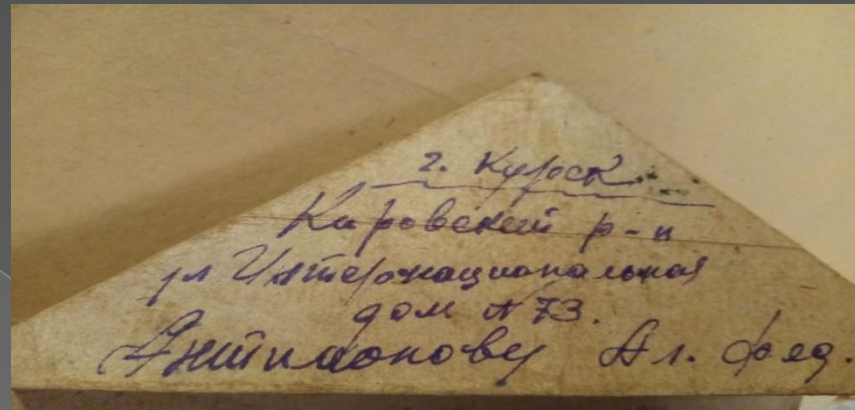 г. Курск
Кировский р-н
ул Интернациональная
дом №73.
Ал. Фед.